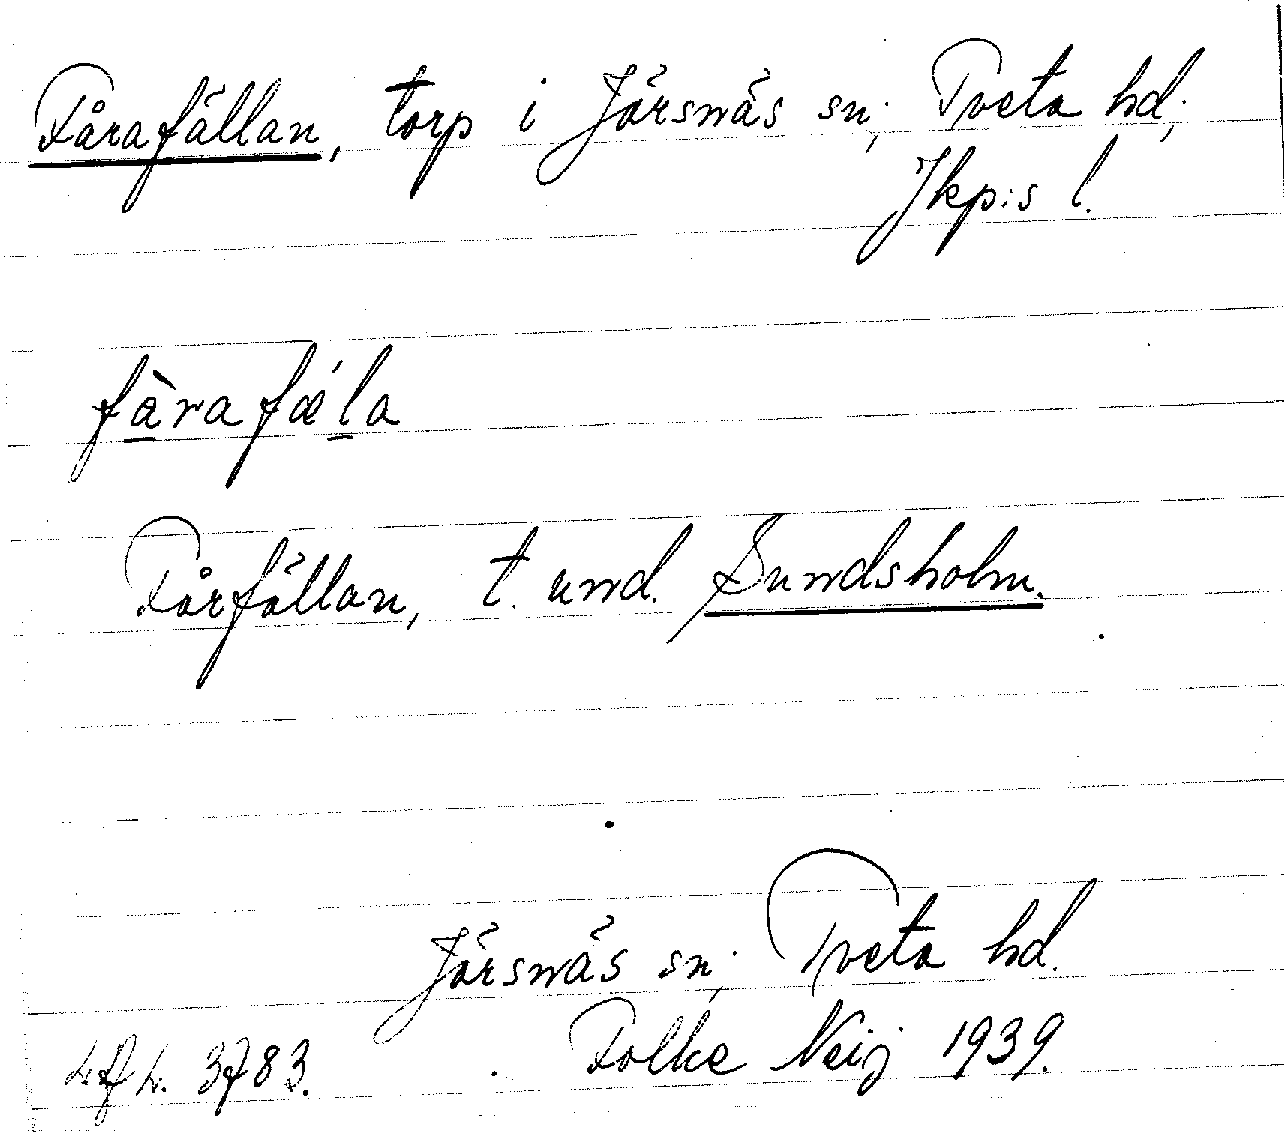 Fårafällan, torp i Järsnäs sn; Tveta hd;
Jkp:s l.
fàrafǽla
Fårfällan, t. und. Sundsholm.
Järsnäs sn; Tveta hd.
3783. Folke Neij 1939.